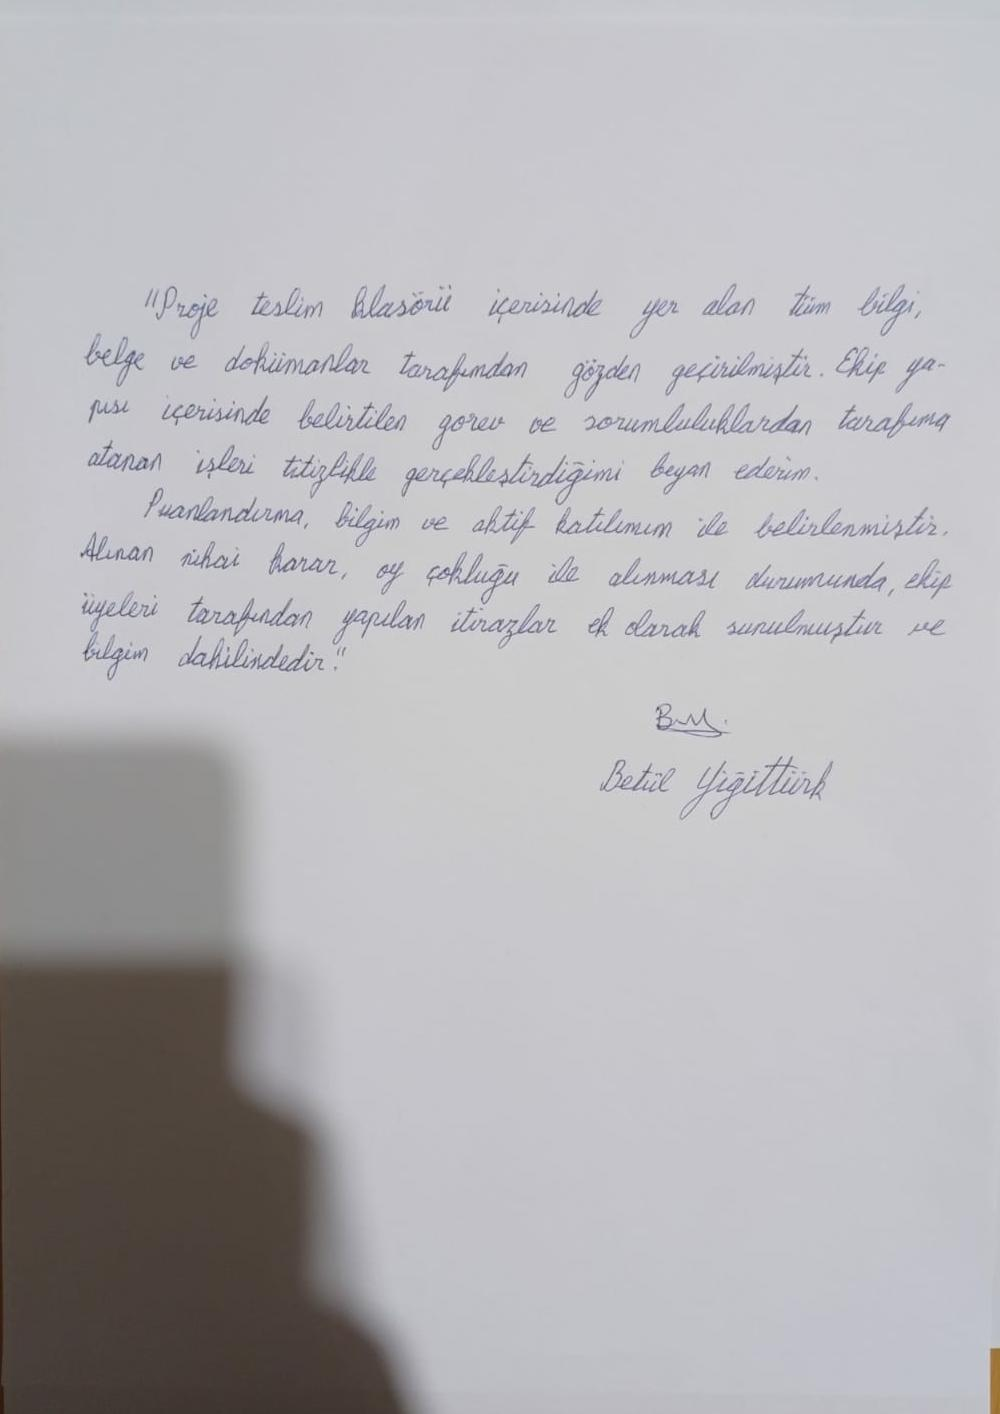 "Proje teslim klasörü içerisinde yer alan tüm bilgi,
belge ve dokümanlar tarafımdan gözden geçirilmiştir. Ekip ya-
pısı içerisinde belirtilen görev ve sorumluluklardan tarafıma
atanan işleri titizlikle gerçekleştirdiğimi beyan ederim.
Puanlandırma, bilgim ve aktif katılımım ile belirlenmiştir.
Alınan nihai karar, oy çokluğu ile alınması durumunda, ekip
üyeleri tarafından yapılan itirazlar ek olarak sunulmuştur ve
bilgim dahilindedir."
Betül Yiğittürk